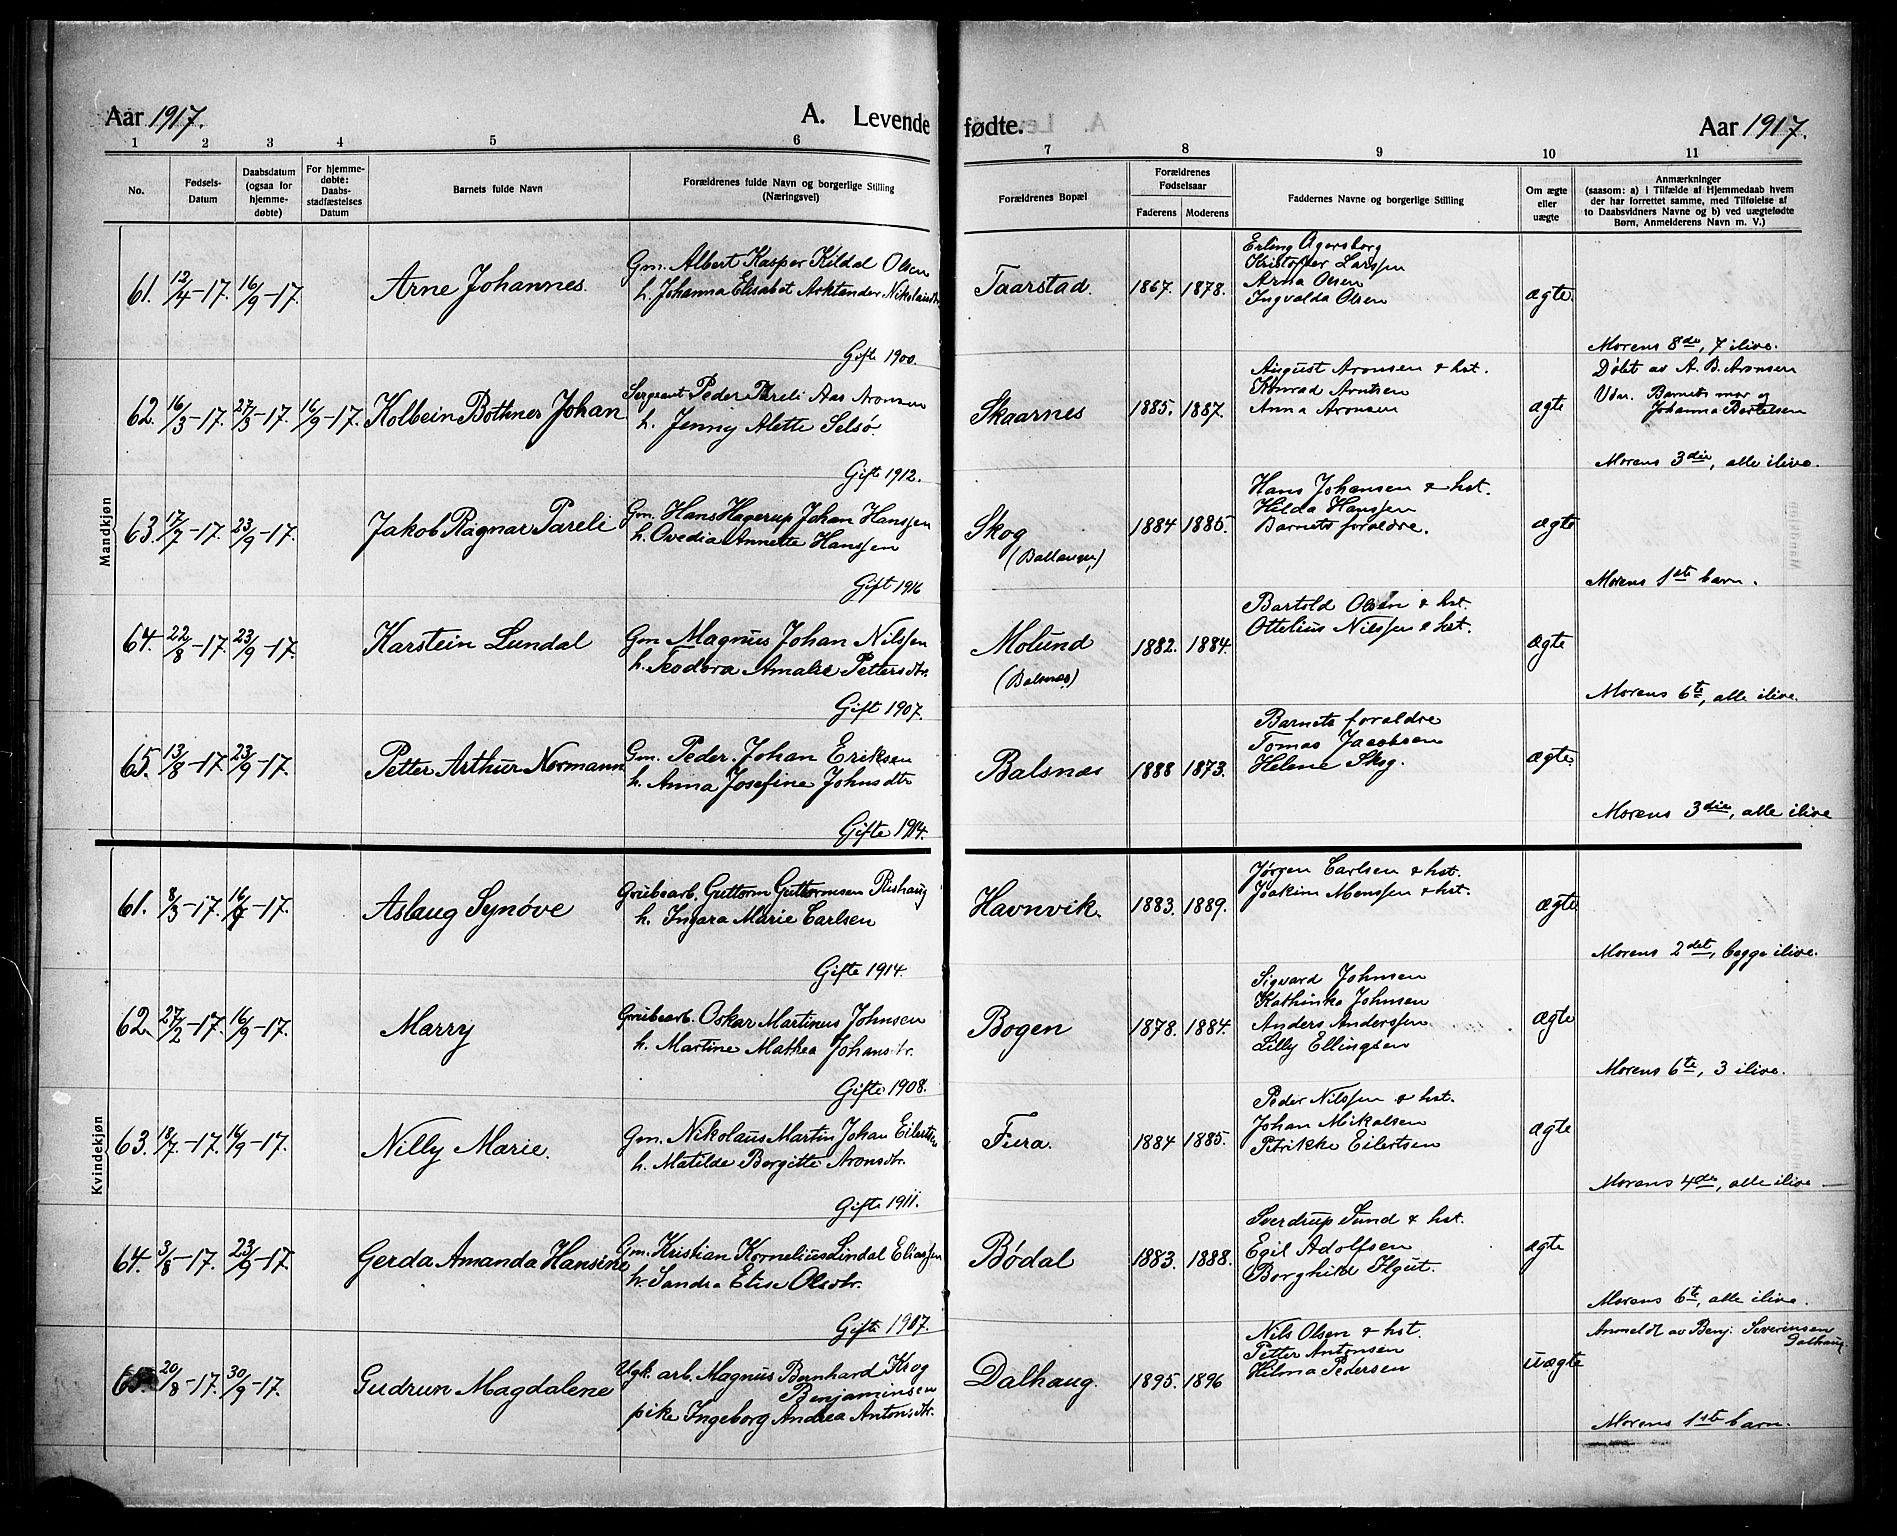 Aar 1917.
A. Levende fødte.
Aar 1917.
1 2 3 4 5 6 7 8 9 10 11
No.
Fødsels-
Datum
Daabsdatum
(ogsaa for
hjemme-
døbte)
For hjemme-
døbte:
Daabs-
stadfæstelses
Datum
Barnets fulde Navn
Forældrenes fulde Navn og borgerlige Stilling
(Næringsvei)
Forældrenes Bopæl
Forældrenes
Fødselsaar
Faderens Moderens
Faddernes Navne og borgerlige Stilling
Om ægte
eller
uægte
Anmærkninger
(saasom: a) i Tilfælde af Hjemmedaab hvem
der har forrettet samme, med Tilføielse af
to Daabsvidners Navne og b) ved uægtefødte
Børn, Anmelderens Navn m. V.)
Mandkjøn
61. 12/4-17. 16/9-17. Arne Johannes.
Gm. Albert Kasper Kildal Olsen
h. Johanna Elisabet Arktander Nikolaisdtr.
Gifte 1900.
Taarstad. 1867. 1878.
Erling Agersborg
Kristoffer Larssen
Arna Olsen
Ingvalda Olsen
ægte.
Morens 8de, 7 ilive.
62. 16/3-17. 27/3-17. 16/9-17. Kolbein Bothner Johan
Sergeant Peder Pareli Aas Aronsen
h. Jenny Alette Selsø.
Gifte 1912.
Skaarnes 1885. 1887.
August Aronsen & hst.
Konrad Arntsen
Anna Aronsen
ægte
Døbt av A. B. Aronsen
Vdn. Barnets mor og
Johanna Bertelsen
Morens 3die, alle ilive.
63. 17/7-17. 23/9-17. Jakob Ragnar Pareli
Gm. Hans Hagerup Johan Hanssen
h. Ovedia Annette Hanssen
Gift 1916
Skog
(Ballangen)
1884 1885.
Hans Johansen & hst.
Hilda Hanssen
Barnets foraldre.
ægte
Morens 1ste barn.
64. 22/8-17. 23/9-17. Karstein Lundal
Gm Magnus Johan Nilssen
h. Teodora Amalie Pettersdtr.
Gift 1907.
Molund
(Balsnes)
1882. 1884.
Bartold Olsen & hst.
Ottelius Nilssen & hst.
ægte
Morens 6te, alle ilive.
65. 13/8-17. 23/9-17. Petter Arthur Normann
Gm. Peder Johan Eriksen
h. Anna Josefine Johnsdtr
Gifte 1914.
Balsnes 1888 1873.
Barnets foraldre
Tomas Jacobsen
Helene Skog.
ægte.
Morens 3die, alle ilive
Kvindekjøn
61. 8/3-17. 16/9-17. Aslaug Synøve
Grubearb. Guttorm Guttormsen Rishaug
h. Ingara Marie Carlsen
Gifte 1914.
Havnvik. 1883. 1889.
Jørgen Carlsen & hst.
Joakim Monssen & hst.
ægte
Morens 2det, begge ilive.
62. 27/2-17. 16/9-17. Marry
Grubearb. Oskar Martinus Johnsen
h. Martine Mathea Johansdtr.
Gifte 1908.
Bogen 1878. 1884.
Sigvard Johnsen
Kathinka Johnsen
Anders Anderssen
Lilly Ellingsen
ægte
Morens 6te, 3 ilive.
63. 18/7-17. 16/9-17. Nilly Marie.
Gm. Nikolaus Martin Johan Eilertsen
h. Matilde Borgitte Aronsdtr.
Gifte 1911.
Fura. 1884 1885.
Peder Nilssen & hst.
Johan Mikalsen
Petrikke Eilertsen
ægte
Morens 4de, alle ilive
64. 3/8-17. 23/9-17. Gerda Amanda Hansine
Gm. Kristian Kornelius Lindal Eliassen
h. Sandra Elise Olsdtr.
Gifte 1907.
Bødal 1883. 1888.
Sverdrup Sund & hst.
Egil Adolfsen
Borghild
ægte
Morens 6te, alle ilive.
65. 20/8-17. 30/9-17. Gudrun Magdalene
Ugk. arb. Magnus Bernhard Krog
Benjaminsen
pike Ingeborg Andrea Antonsdtr.
Dalhaug. 1895. 1896
Nils Olsen & hst.
Petter Antonsen
Hilma Pedersen
uægte
Anmeldt av Benj. Severinsen
Dalhaug
Morens 1ste barn.